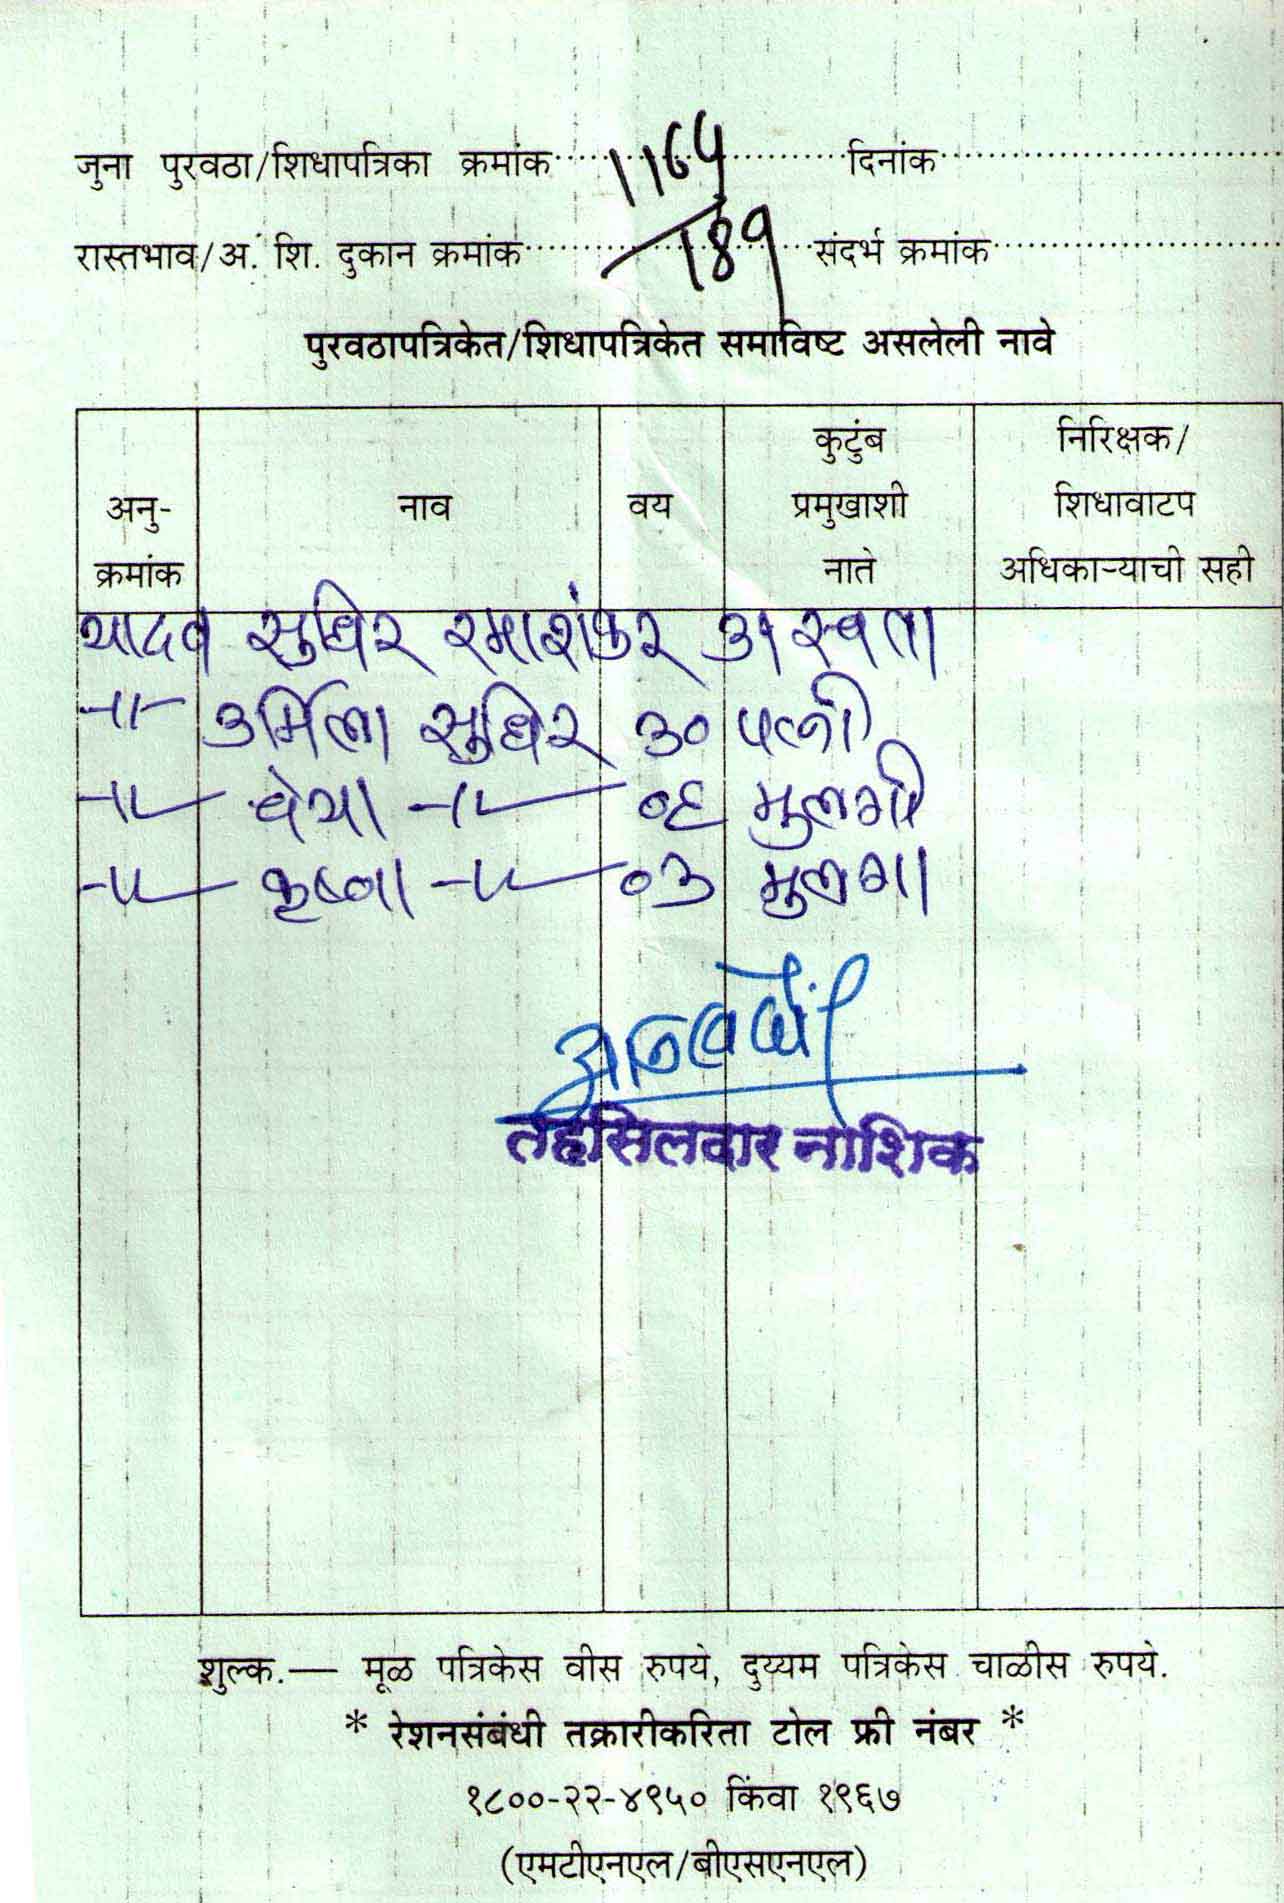 जुना पुरवठा/शिधापत्रिका क्रमांक 1164 दिनांक
रास्तभाव/अ. शि. दुकान क्रमांक 189 संदर्भ क्रमांक
पुरवठापत्रिकेत/शिधापत्रिकेत समाविष्ट असलेली नावे
अनु-क्रमांक नाव वय कुटुंब प्रमुखाशी नाते निरिक्षक/शिधावाटप अधिकाऱ्याची सही
यादव सुधिर रमाशंकर ३५ स्वता
-॥- उर्मिला सुधिर ३० पत्नी
-॥- -॥- ०६ मुलगी
-॥- कृष्णा -॥- ०३ मुलगा
तहसिलदार नाशिक
शुल्क.— मूळ पत्रिकेस वीस रुपये, दुय्यम पत्रिकेस चाळीस रुपये.
* रेशनसंबंधी तक्रारीकरिता टोल फ्री नंबर *
१८००-२२-४९५० किंवा १९६७
(एमटीएनएल/बीएसएनएल)